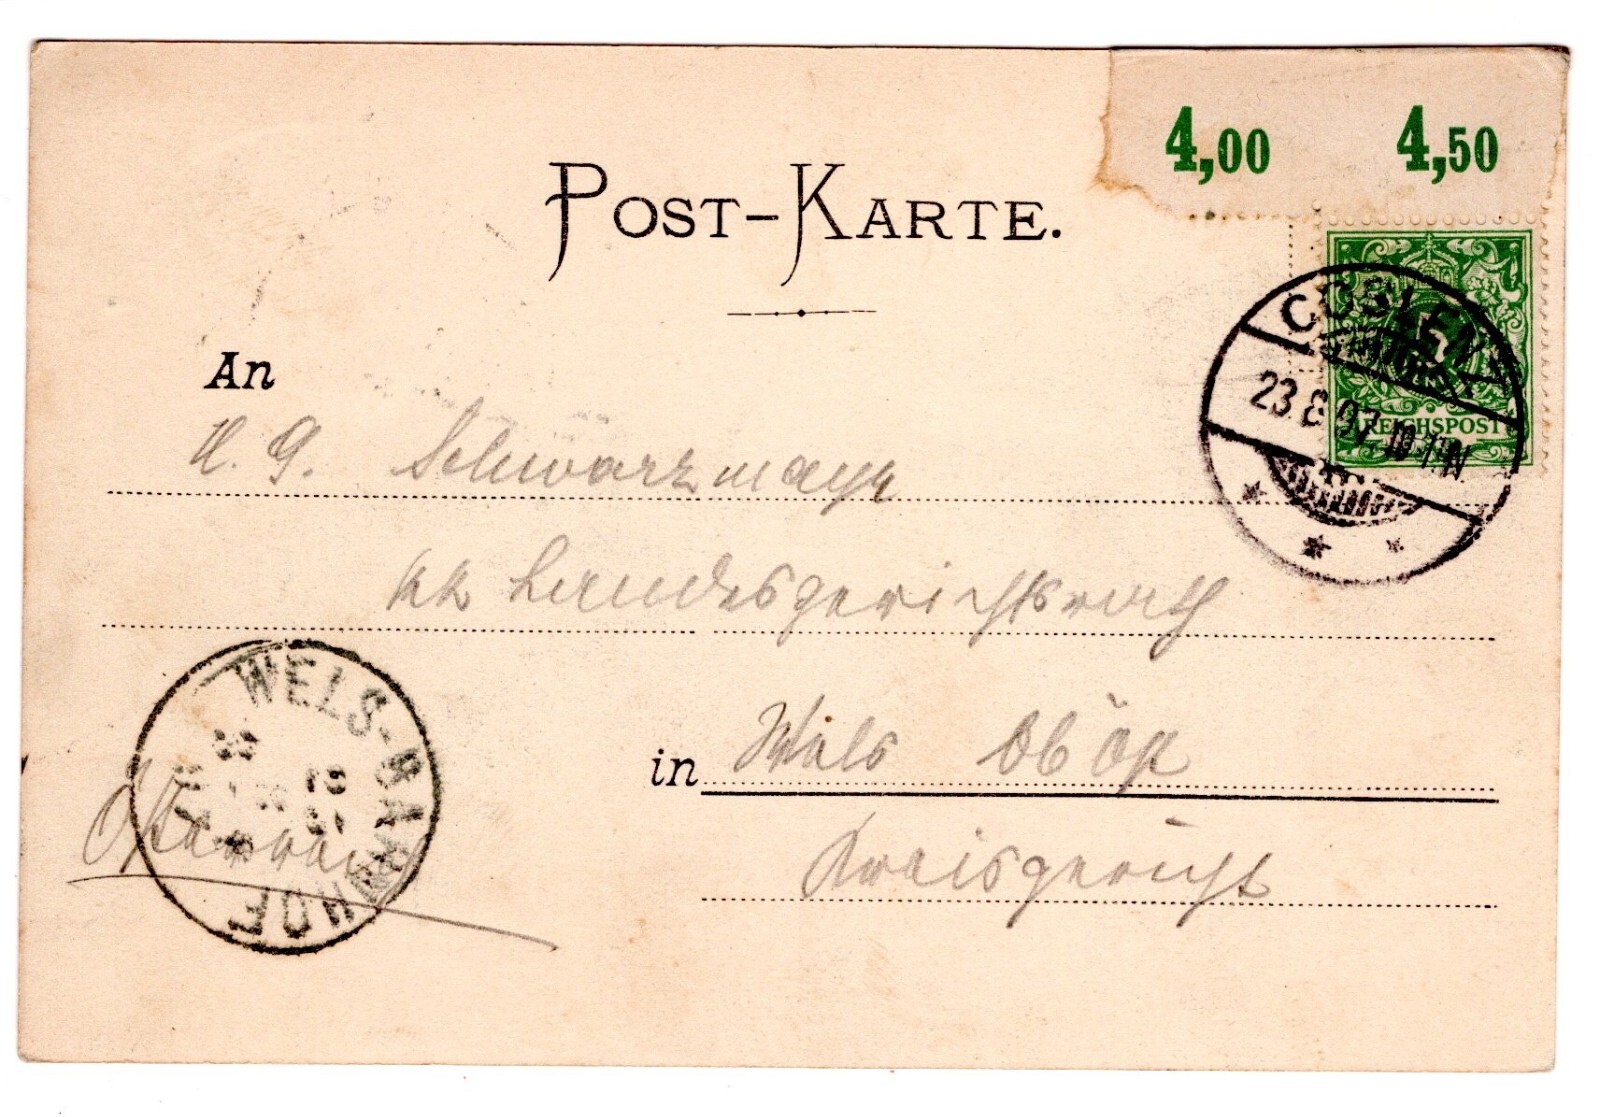 4,00 4,50
POST-KARTE.
COBLENZ
23.8.97. 10-11 N.
REICHSPOST
An
H. G. Schwarzmayr
kk Landesgerichtsrath
in Wels Ob Öst
Kreisgericht
WELS-BAHNHOF
Österreich